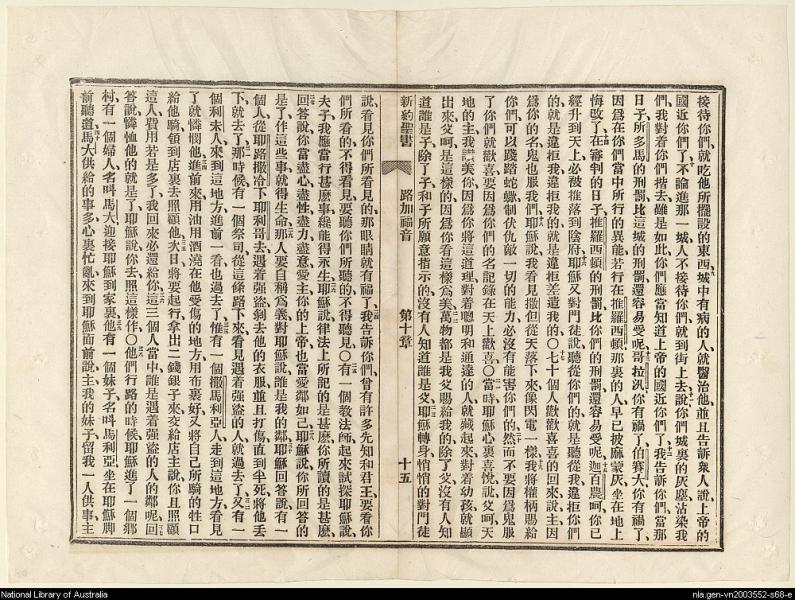 接待你們、就吃他所擺設的東西、城中有病的人、就醫治他、並且告訴衆人說、上帝的
國近你們了、不論進那一城、人不接待你們、就到街上去說、你們城裏的灰塵沾染我
們、我對着你們揩去、雖是如此、你們應當知道上帝的國近你們了、我告訴你們、當那
日子、所多馬的刑罰、比這城的刑罰還容易受呢、哥拉汛你有禍了、伯賽大你有禍了、
因爲在你們當中所行的異能、若行在推羅西頓、那裏的人早已披麻蒙灰、坐在地上
悔改了、在審判的日子、推羅西頓的刑罰、比你們的刑罰還容易受呢、迦百農呵、你已
經升到天上、必被推落到陰府、耶穌又對門徒說、聽從你們的、就是聽從我、違拒你們
的、就是違拒我、違拒我的、就是違拒差遣我的○七十個人歡歡喜喜的回來說、主、因
爲你的名、鬼也服我們、耶穌說、我看見撒但從天落下來、像閃電一樣、我將權柄賜給
你們、可以踐踏蛇蠍、制伏仇敵一切的能力、必沒有能害你們的、然而不要因爲鬼服
了你們就歡喜、要因爲你們的名記錄在天上歡喜○當時耶穌心裏喜悅說、父呵、天
地的主、我讚美你、因爲你將這道理、對着聰明和通達的人就藏起來、對着幼孩就顯
出來、父呵、是這樣的、因爲你看這樣爲美、萬物都是我父賜給我的、除了父、沒有人知
道誰是子、除了子和子所願意指示的、沒有人知道誰是父、耶穌轉身悄悄的對門徒
新約聖書
路加福音
第十章
十五
說、看見你們所看見的、那眼睛就有福了、我告訴你們、曾有許多先知和君王、要看你
們所看的、不得看見、要聽你們所聽的、不得聽見○有一個教法師、起來試探耶穌說、
夫子、我應當行甚麽事、纔能得永生、耶穌說、律法上所記的是甚麽、你所讀的是甚麽、
回答說、你當盡心盡性盡力盡意、愛主你的上帝、也當愛鄰如己、耶穌說、你所回答的
是了、作這些事就得生命、那人要自稱爲義、對耶穌說、誰是我的鄰、耶穌回答說、有一
個人從耶路撒冷下耶利哥去、遇着强盜、剝去他的衣服、並且打傷、直到半死、將他丟
下就去了、那時候、有一個祭司、從這條路下來、看見遇着强盜的人、就過去了、又有一
個利未人、來到這地方、進前一看、也過去了、惟有一個撒馬利亞人、走到這地方看見
了、就憐憫他、進前來用油用酒澆在他受傷的地方、用布裹好、又將自己所騎的牲口
給他騎、領到店裏去照顧他、次日將要起行、拿出二錢銀子來、交給店主說、你且照顧
這人、費用若是多了、我回來必還給你、這三個人當中、誰是遇着强盜的人的鄰呢、回
答說、憐恤他的就是了、耶穌說、你去照這樣作○他們行路的時候、耶穌進了一個鄉
村、有一個婦人名叫馬大、迎接耶穌到家裏、他有一個妹子、名叫馬利亞、坐在耶穌脚
前聽道、馬大供給的事多、心裏忙亂、來到耶穌面前說、主、我的妹子留我一人供事、主
National Library of Australia
nla.gen-vn2003552-s68-e